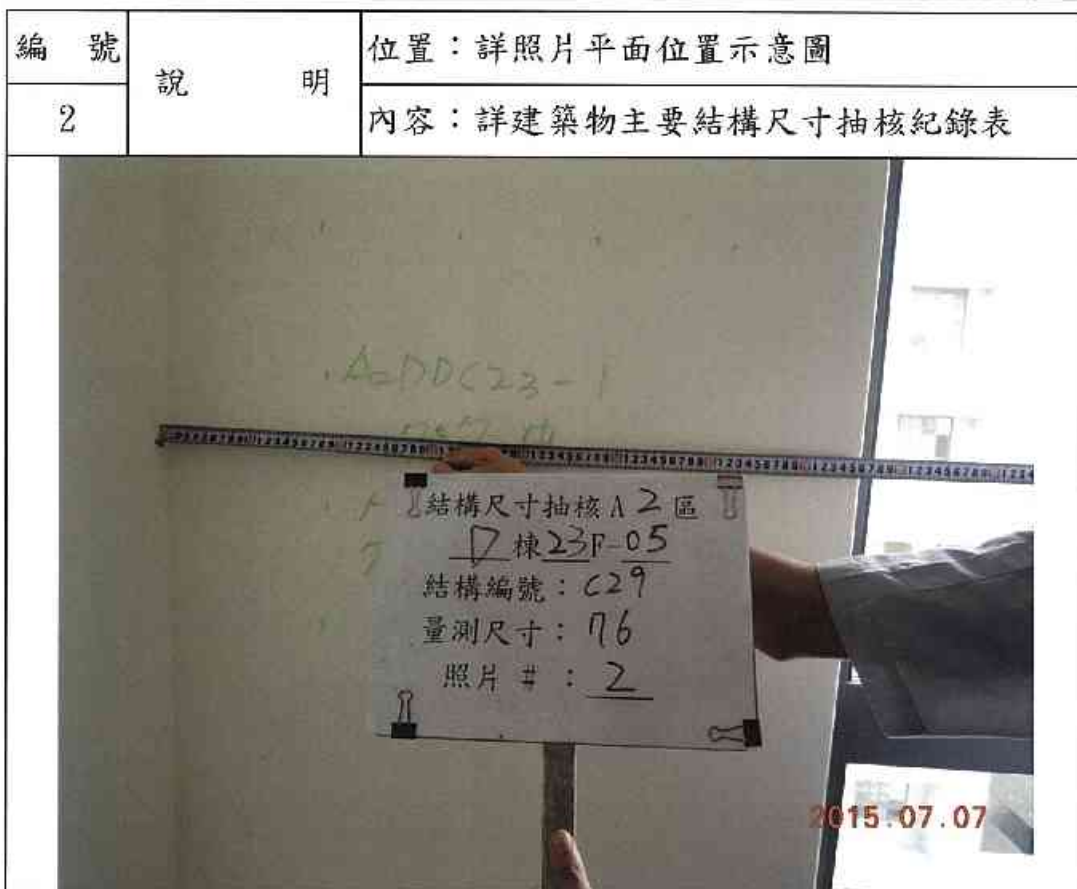 編號
2
說明
位置：詳照片平面位置示意圖
內容：詳建築物主要結構尺寸抽核紀錄表
A2DDC23-1
結構尺寸抽核A 2 區
D 棟 23F-05
結構編號：C29
量測尺寸：76
照片 #：2
2015.07.07